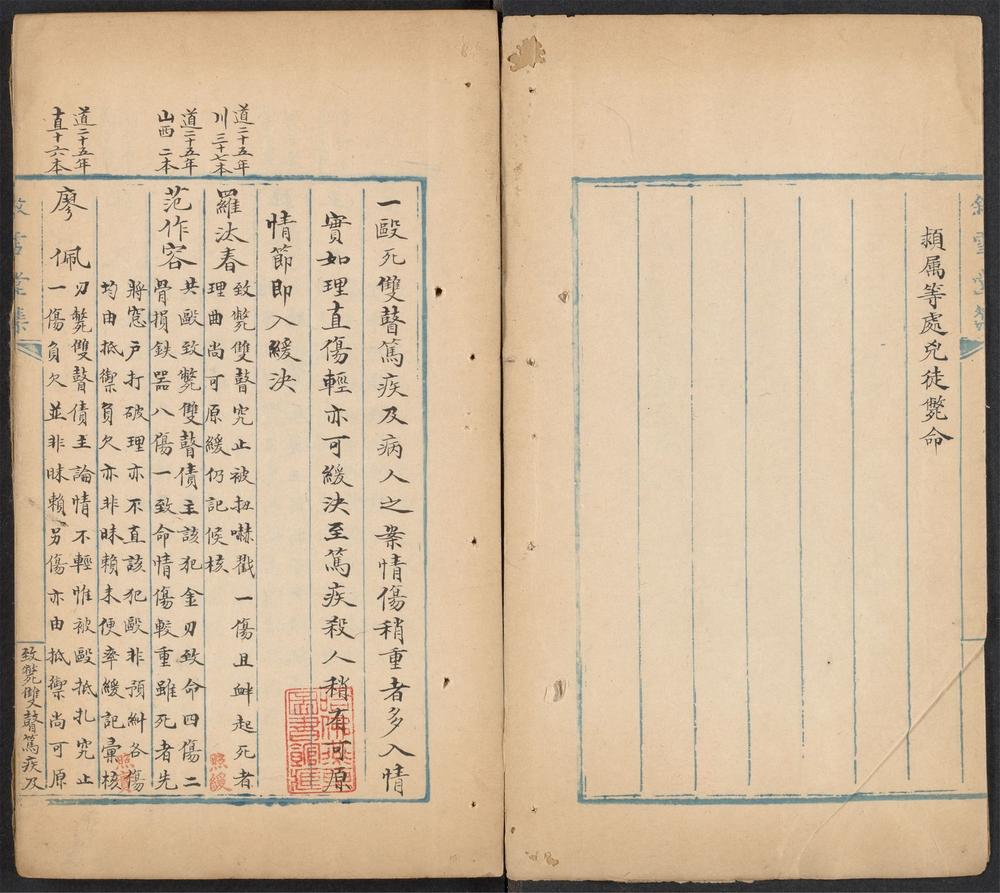 類属等處兇徒斃命
敘雪堂集
一毆死雙瞽篤疾及病人之案情傷稍重者多入情
實如理直傷輕亦可緩決至篤疾殺人稍有可原
情節即入緩決
道二十五年
川三十七本
羅汰春
致斃雙瞽究止被扭嚇戳一傷且衅起死者
理曲尚可原緩仍記候核
照緩
道二十五年
山西二本
范作容
共毆致斃雙瞽債主該犯金刃致命四傷二
骨損鉄噐八傷一致命情傷較重雖死者先
將窓戶打破理亦不直該犯毆非預糾各傷
均由抵禦負欠亦非昧賴未便率緩記彙核
照
道二十五年
直十六本
廖佩
刃斃雙瞽債主論情不輕惟被毆抵扎究止
一傷負欠並非昧賴另傷亦由抵禦尚可原
敘雪堂集
致斃雙瞽篤疾及